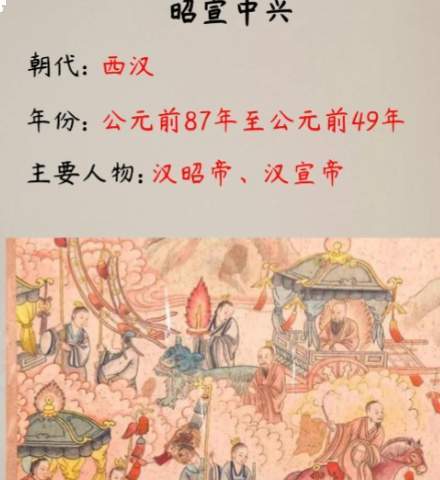 昭宣中兴
朝代：西汉
年份：公元前87年至公元前49年
主要人物：汉昭帝、汉宣帝